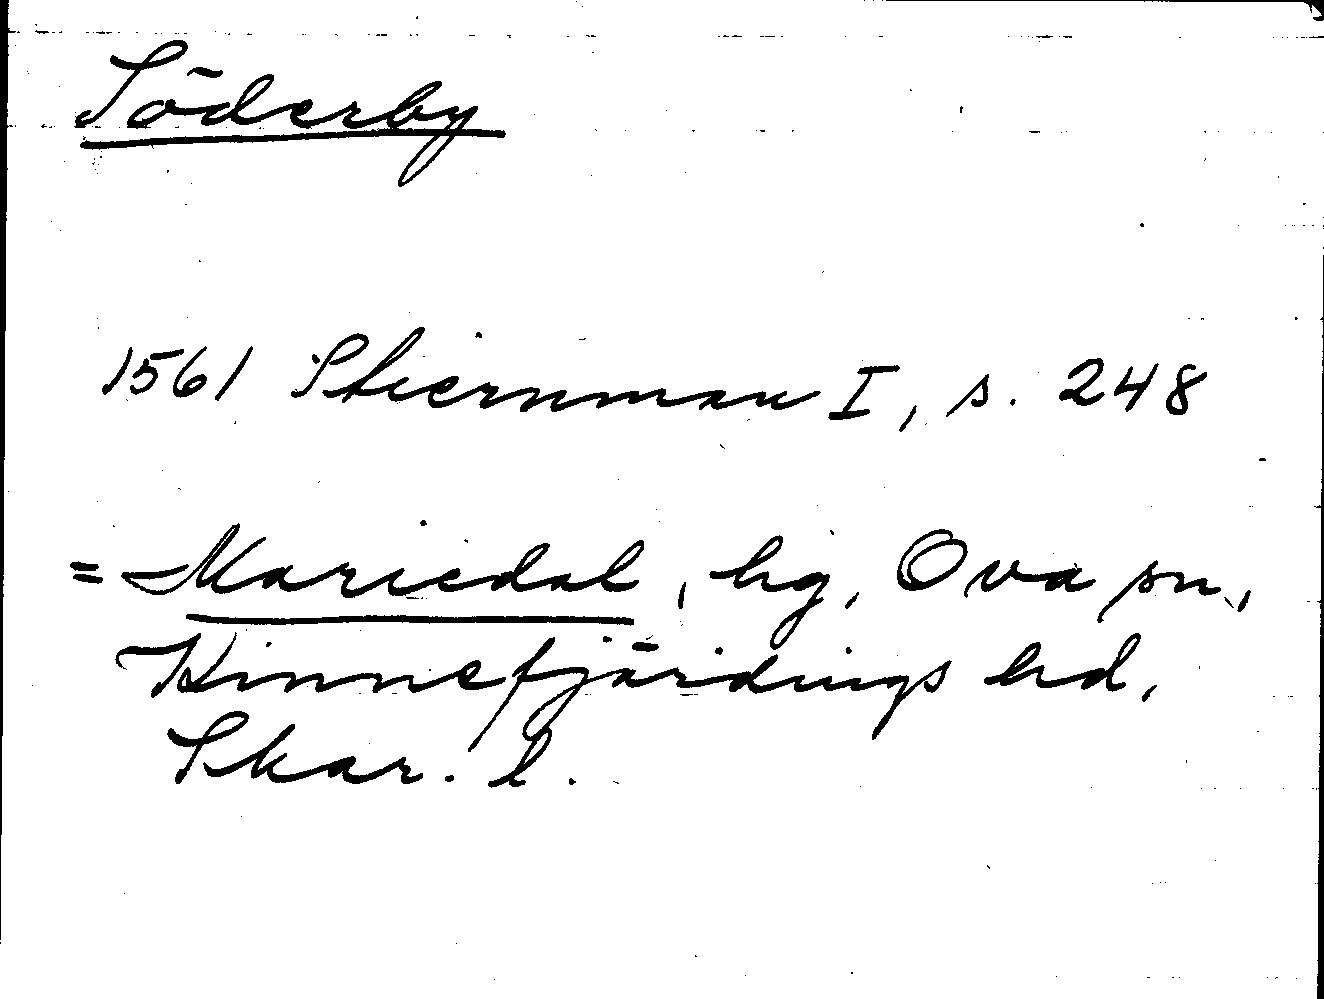 Söderby
1561 Stiernman I, s. 248
= Mariedal, hg, Ova sn,
Kinnefjärdings hd,
Skar. l.